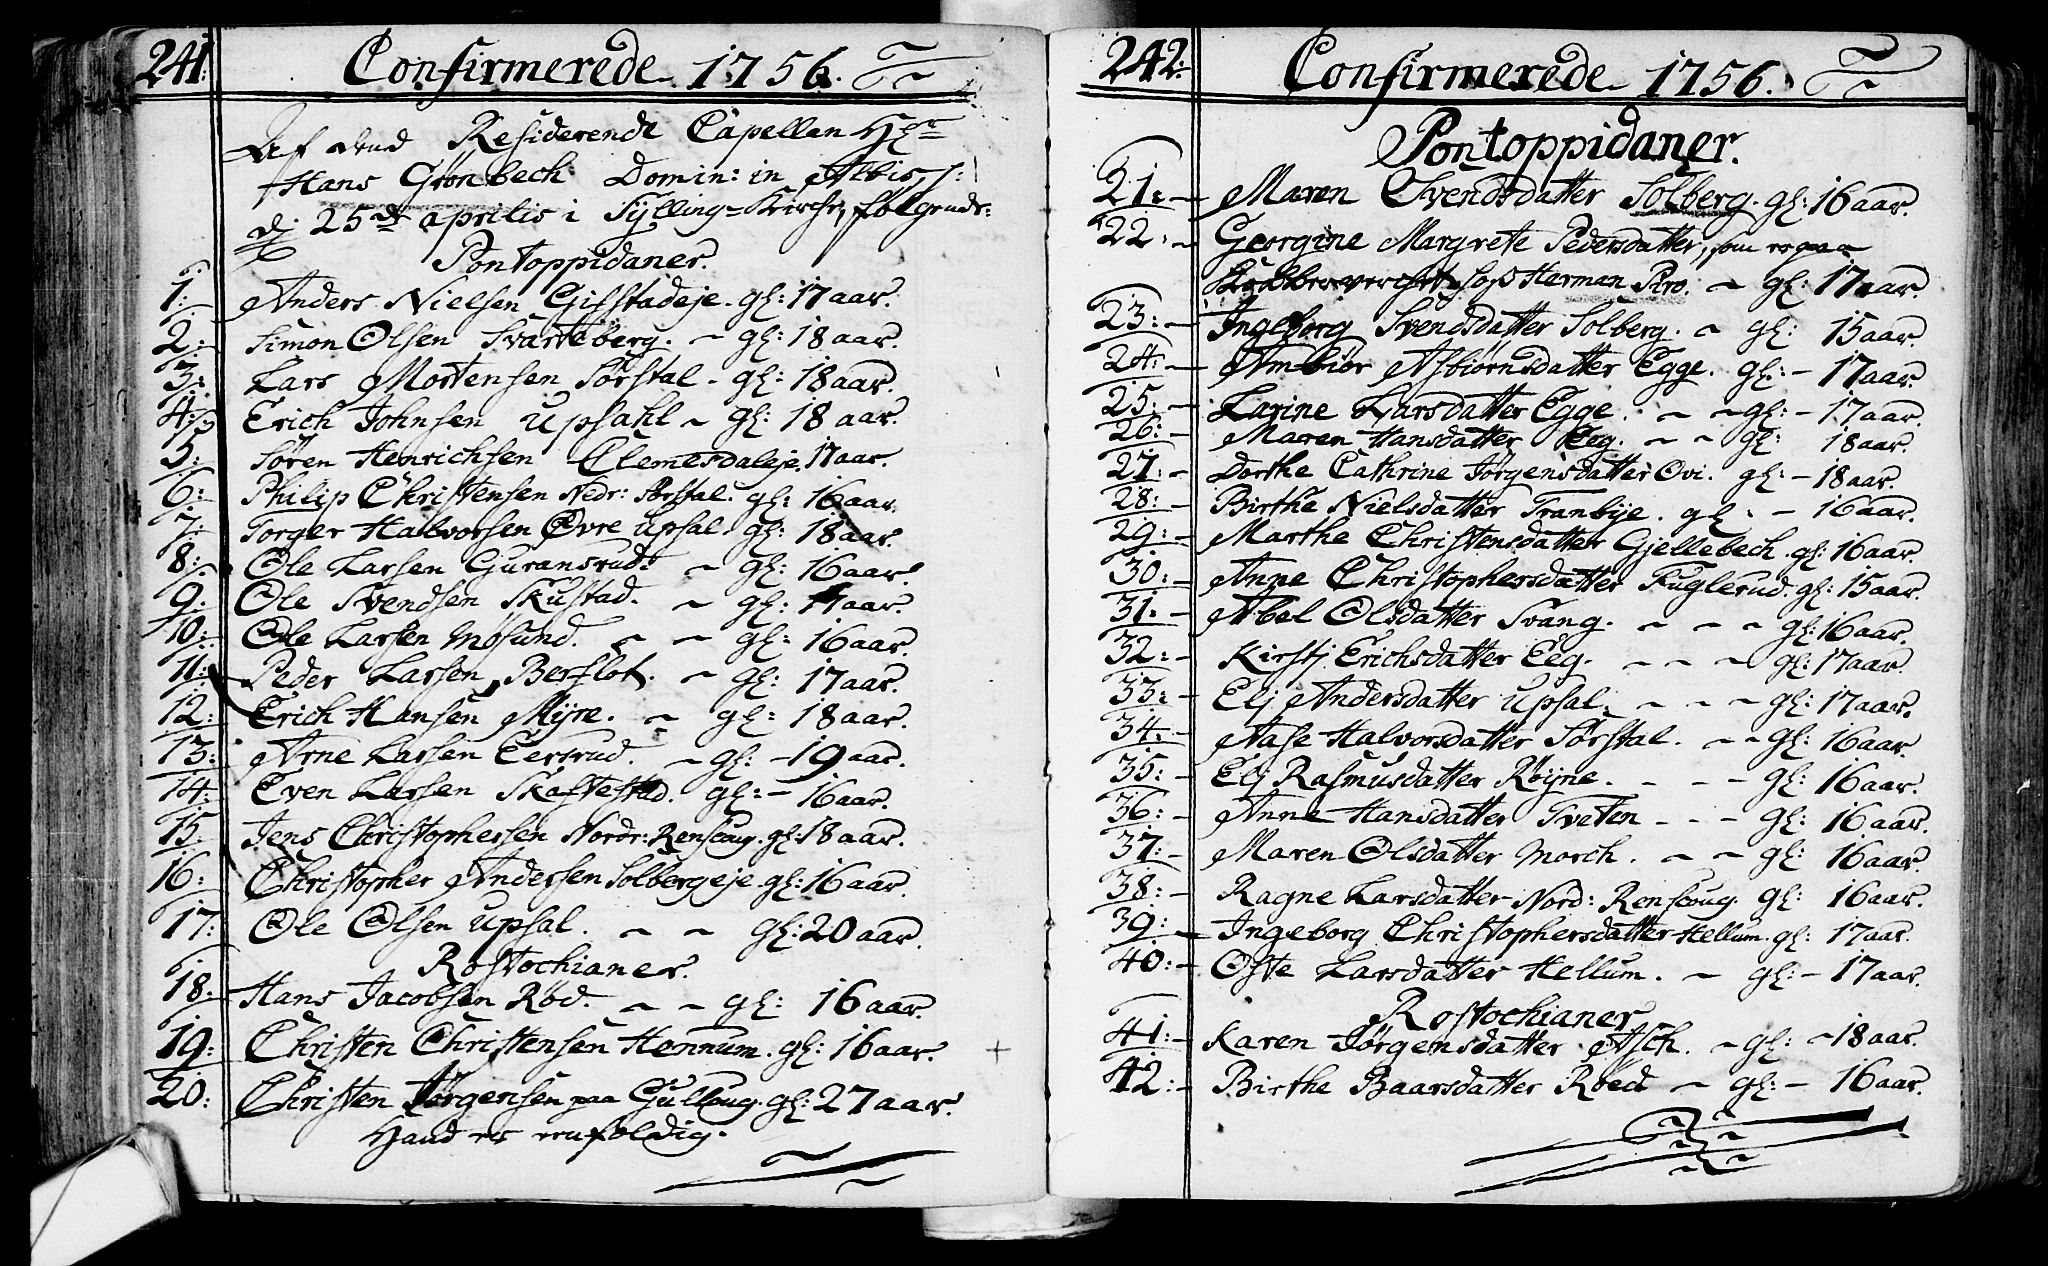 241:
Confirmerede 1756.
Af dend Residerende Capellan Hr
Hans Grønbech Domin: in Albis, s:
dj 25de aprilis i Sylling-Kirche, følgende:
Pontoppidaner.
1: Anders Nielsen Gifstadeje. gl: 17 aar.
2: Simon Olsen Svarteberg. ~ gl: 18 aar.
3: Lars Mortensen Sørstal. gl: 18 aar.
4: Erich Johnsen Upsahl ~ gl: 18 aar.
5: Søren Henrichsen Clemesdaleje, 17 aar.
6: Philip Christensen Nedr: Sørstal. gl: 16 aar.
7: Torger Halvorsen Øvre Upsal. gl: 18 aar.
8: Ole Larsen Guransrud. ~ gl: 16 aar.
9: Ole Svendsen Skustad. ~ gl: 17 aar.
10: Ole Larsen Møsund. ~ ~ gl: 16 aar.
11: Peder Larsen Berflot. ~ gl: 17 aar.
12: Erich Hansen Myre. ~ gl: 18 aar.
13: Arne Larsen Eersrud. ~ gl: - 19 aar.
14: Even Larsen Skaftestad. gl: - 16 aar.
15. Jens Christophersen Nordr: Renscoug. gl: 18 aar.
16: Christopher Andersen Solbergeje. gl: 16 aar.
17: Ole Olsen Upsal. ~ ~ gl: 20 aar.
Rostochianer.
18: Hans Jacobsen Rød. ~ ~ gl: 16 aar.
19: Christen Christensen Hennum. gl: 16 aar. +
20: Christen Jørgensen paa Gulloug. gl: 27 aar.
Hand er eenfoldig.
242:
Confirmerede 1756.
Pontoppidaner.
21: - Maren Svendsdatter Solberg. gl: 16 aar.
22: ~ Georgine Margrete Pedersdatter, som er paa
hos Herman Piro. ~ gl: 17 aar.
23: - Ingeborg Svendsdatter Solberg. ~ gl: 15 aar.
24: - Ambiør Asbiørnsdatter Egge. gl: - 17 aar.
25: - Karine Larsdatter Egge. ~ ~ gl: - 17 aar.
26: - Maren Hansdatter Eeg. ~ ~ gl: 18 aar.
27: - Dorthe Cathrine Jørgensdatter Ovi. gl: - 18 aar.
28: - Birthe Nielsdatter Tranbye. gl: - 16 aar.
29: - Marthe Christensdatter Gjellebech. gl: 16 aar.
30: - Anne Christophersdatter Fuglerud. gl: 15 aar.
31: - Abel Olsdatter Svang. ~ ~ ~ gl: 16 aar.
32: - Kirstj Erichsdatter Eeg. ~ ~ ~ gl: 17 aar.
33: - Elj Andersdatter Upsal. ~ ~ ~ gl: 17 aar.
34: - Aase Halvorsdatter Sørstal. ~ ~ gl: 16 aar.
35: - Elj Rasmusdatter Røyne. - - - gl: 16 aar.
36: - Anne Hansdatter Tveten - - - gl: 16 aar.
37: - Maren Olsdatter Morch. ~ ~ gl: 16 aar.
38: - Ragne Larsdatter Nord: Renscoug. gl: 16 aar.
39: - Ingeborg Christophersdatter Hellum. gl: 17 aar.
40: - Øste Larsdatter Hellum. ~ gl: - 17 aar.
Rostochianer
41: - Karen Jørgensdatter Asch. ~ gl: ~ 18 aar.
42: - Birthe Baarsdatter Roed ~ gl: - 16 aar.